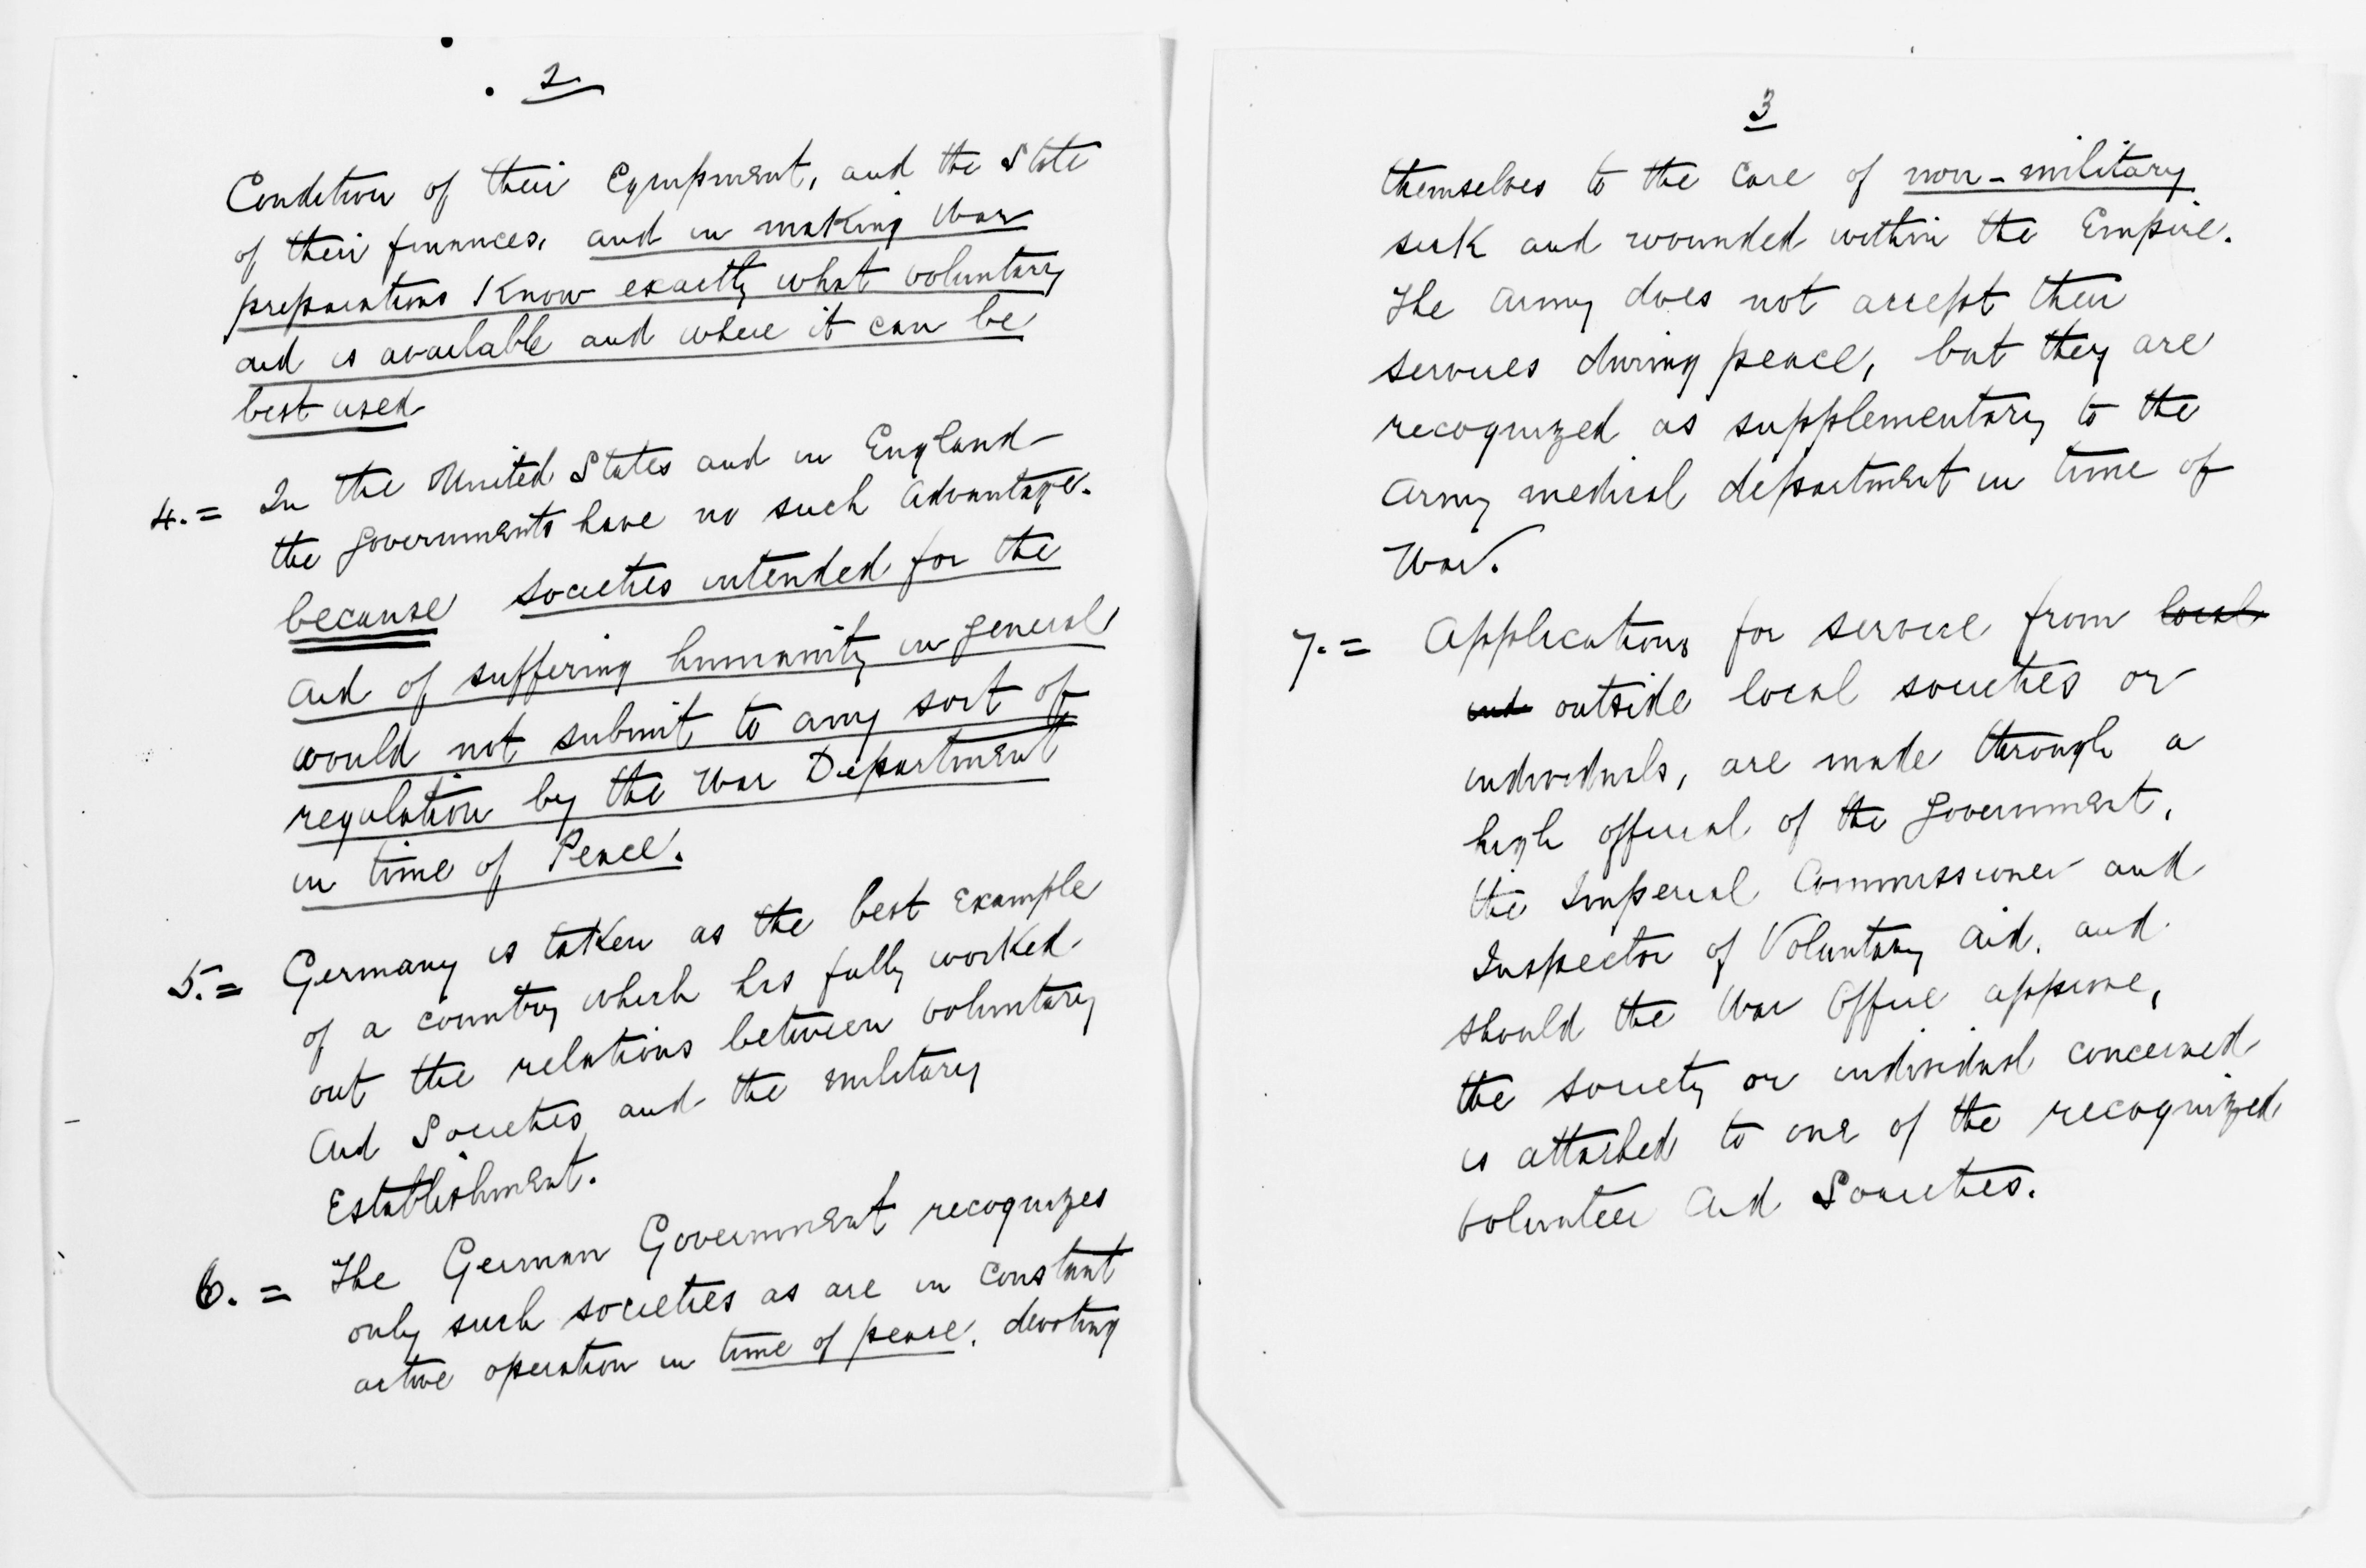 2
Condition of their Equipment, and the State
of their finances, and in making War
preparations Know exactly what voluntary
aid is available and where it can be
best used
4.= In the United States and in England
the Governments have no such advantage.
because societies intended for the
aid of suffering humanity in general,
would not submit to any sort of
regulation by the War Department
in time of Peace.
5.= Germany is taken as the best example
of a country which has fully worked
out the relations between voluntary
Aid Societies and the military
Establishment.
6.= The German Government recognizes
only such societies as are in constant
active operation in time of peace, devoting
3
themselves to the care of non-military
sick and wounded within the Empire.
The army does not accept their
services during peace, but they are
recognized as supplementary to the
army medical department in time of
War.
7.= Applications for service from local
and outside local societies or
individuals, are made through a
high official of the Government,
the Imperial Commissioner and
Inspector of Voluntary Aid, and
should the War Office approve,
the society or individual concerned
is attached to one of the recognized
volunteer Aid Societies.